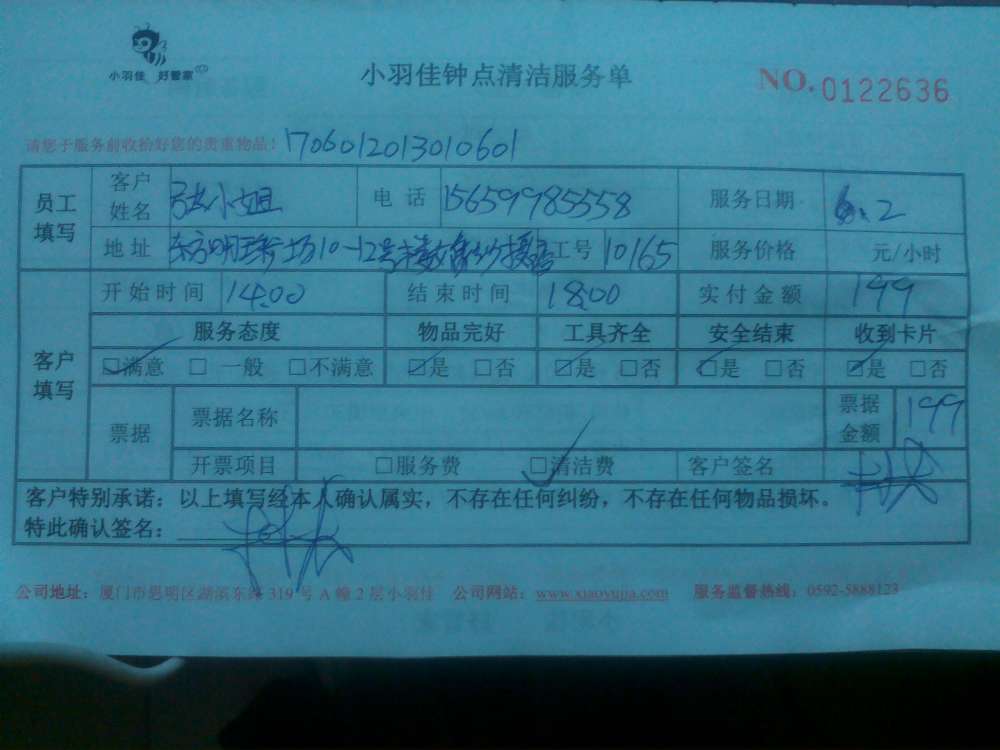 小羽佳 好管家
小羽佳钟点清洁服务单
NO.0122636
请您于服务前收拾好您的贵重物品！ 1706012013010601
员工填写
客户姓名 张小姐 电话 15659985558 服务日期 6.2
地址 东方明珠广场10-12号楼 工号 10165 服务价格 元/小时
客户填写
开始时间 14:00 结束时间 18:00 实付金额 199
服务态度 物品完好 工具齐全 安全结束 收到卡片
☑满意 □一般 □不满意 ☑是 □否 ☑是 □否 ☑是 □否 ☑是 □否
票据 票据名称 票据金额 199
开票项目 □服务费 ☑清洁费 客户签名
客户特别承诺：以上填写经本人确认属实，不存在任何纠纷，不存在任何物品损坏。
特此确认签名：
公司地址：厦门市思明区湖滨东路 319 号 A 幢 2 层小羽佳 公司网站：www.xiaoyujia.com 服务监督热线：0592-5888123